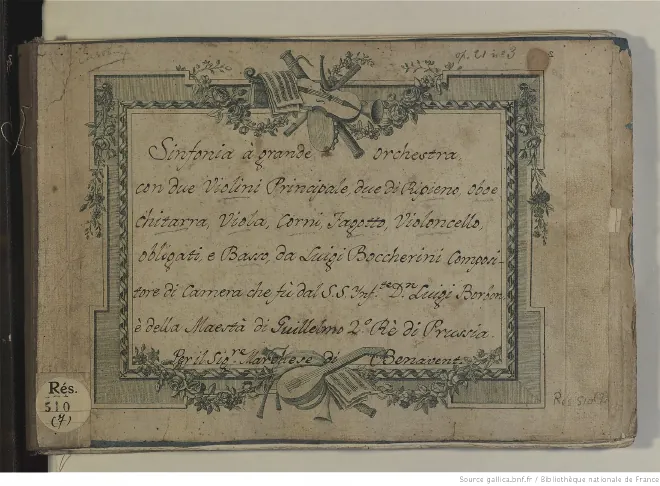 op. 21 nº 3
Sinfonia à grande orchestra
con due Violini Principale, due di Ripieno, oboe
chitarra, Viola, Corni, Fagotto, Violoncello,
obligati, e Basso, da Luigi Boccherini Composi-
tore di Camera che fù dal S.S. Inf.te D.n Luigi Borbon
è della Maestà di Guillelmo 2.º Rè di Prussia.
Per il Sig.re Marchese di Benavent
Rés.
510
(7)
Source gallica.bnf.fr / Bibliothèque nationale de France